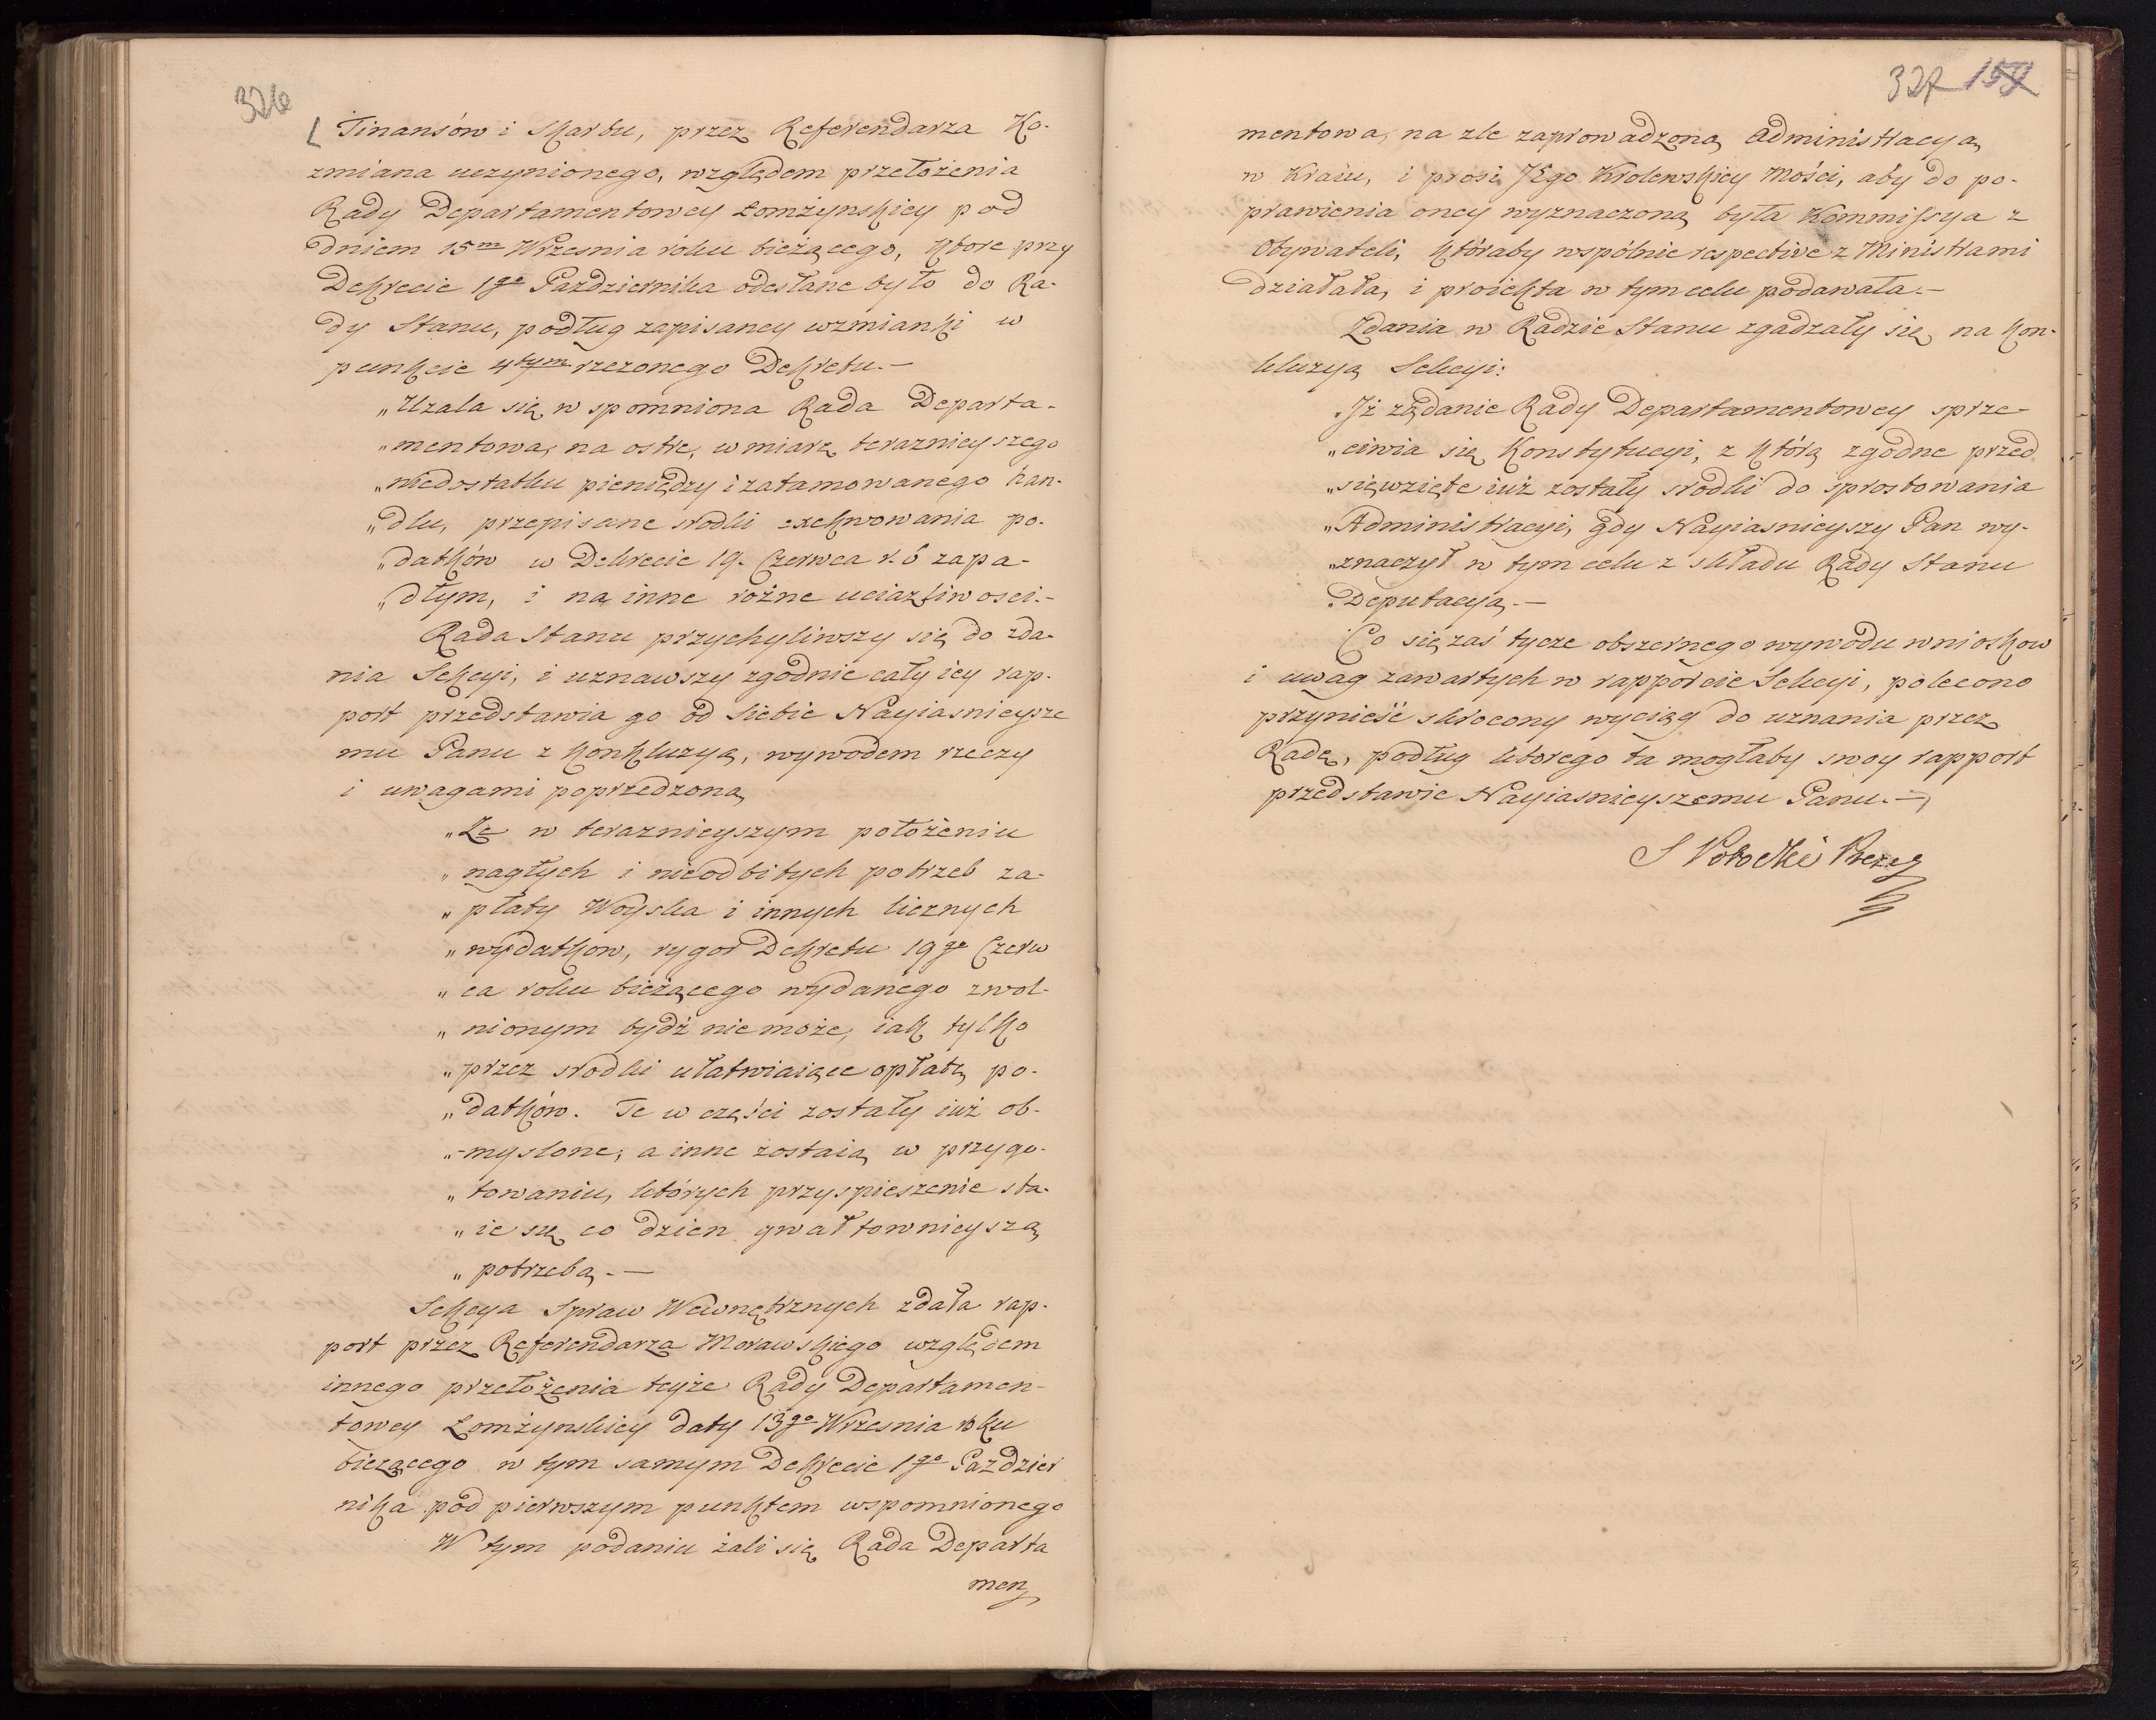 326
Finansów i Skarbu, przez Referendarza Ko-
zmiana uczynionego, względem przełożenia
Rady Departamentowey Łomżynskiey pod
dniem 15m Wrzesnia roku bieżącego, ktore przy
Dekrecie 1go Pazdziernika odesłane było do Ra-
dy Stanu, podług zapisaney wzmianki w
punkcie 4tym rzeczonego Dekretu.—
„Uzala się wspomniona Rada Departa-
„mentowa, na ostre, w miarę teraznieyszego
„niedostatku pieniędzy i zatamowanego han-
„dlu, przepisane srodki exekwowania po-
„datków w Dekrecie 19. Czerwca r. b zapa-
„dłym, i na inne różne uciazliwosci.-
Rada Stanu przychyliwszy się do zda-
nia Sekcyi, i uznawszy zgodnie cały iey rap-
port przedstawia go od siebie Nayiasnieysze
mu Panu z konkluzyą, wywodem rzeczy
i uwagami poprzedzoną
„Że w teraznieyszym położeniu
„nagłych i nieodbitych potrzeb za-
„płaty Woyska i innych licznych
„wydatkow, rygor Dekretu 19go Czerw
„ca roku bieżącego wydanego zwol-
„nionym bydź niemoże, iak tylko
„przez srodki ułatwiaiące opłatę po-
„datków. Te w części zostały iuż ob-
„myslone, a inne zostaią w przygo-
„towaniu, których przyspieszenie sta-
„ie się co dzien gwałtownieyszą
„potrzebą.—
Sekcya Spraw Wewnętrznych zdała rap-
port przez Referendarza Morawskiego względem
innego przełożenia teyże Rady Departamen-
towey Łomżynskiey daty 13go Wrzesnia roku
bieżącego w tym samym Dekrecie 1go Pazdzier
nika pod pierwszym punktem wspomnionego
W tym podaniu żali się Rada Departa
men
327 159
mentowa, na zle zaprowadzoną Administracyą
w Kraiu, i prosi JEgo Krolewskiey Mości, aby do po-
prawienia oney wyznaczoną była Kommissya z
Obywateli, któraby wspólnie respective z Ministrami
działała, i proiekta w tym celu podawała.—
Zdania w Radzie Stanu zgadzały się na kon-
kluzyą Sekcyi:
„Iż żądanie Rady Departamentowey sprze-
„ciwia się Konstytucyi, z którą zgodne przed
„sięwzięte iuż zostały srodki do sprostowania
„Administracyi, gdy Nayiasnieyszy Pan wy-
„znaczył w tym celu z składu Rady Stanu
„Deputacyą.—
Co się zaś tycze obszernego wywodu wnioskow
i uwag zawartych w rapporcie Sekcyi, polecono
przynieść skrocony wyciąg do uznania przez
Radę, podług ktorego ta mogłaby swoy rapport
przedstawic Nayiasnieyszemu Panu.—
S Potocki Prezes